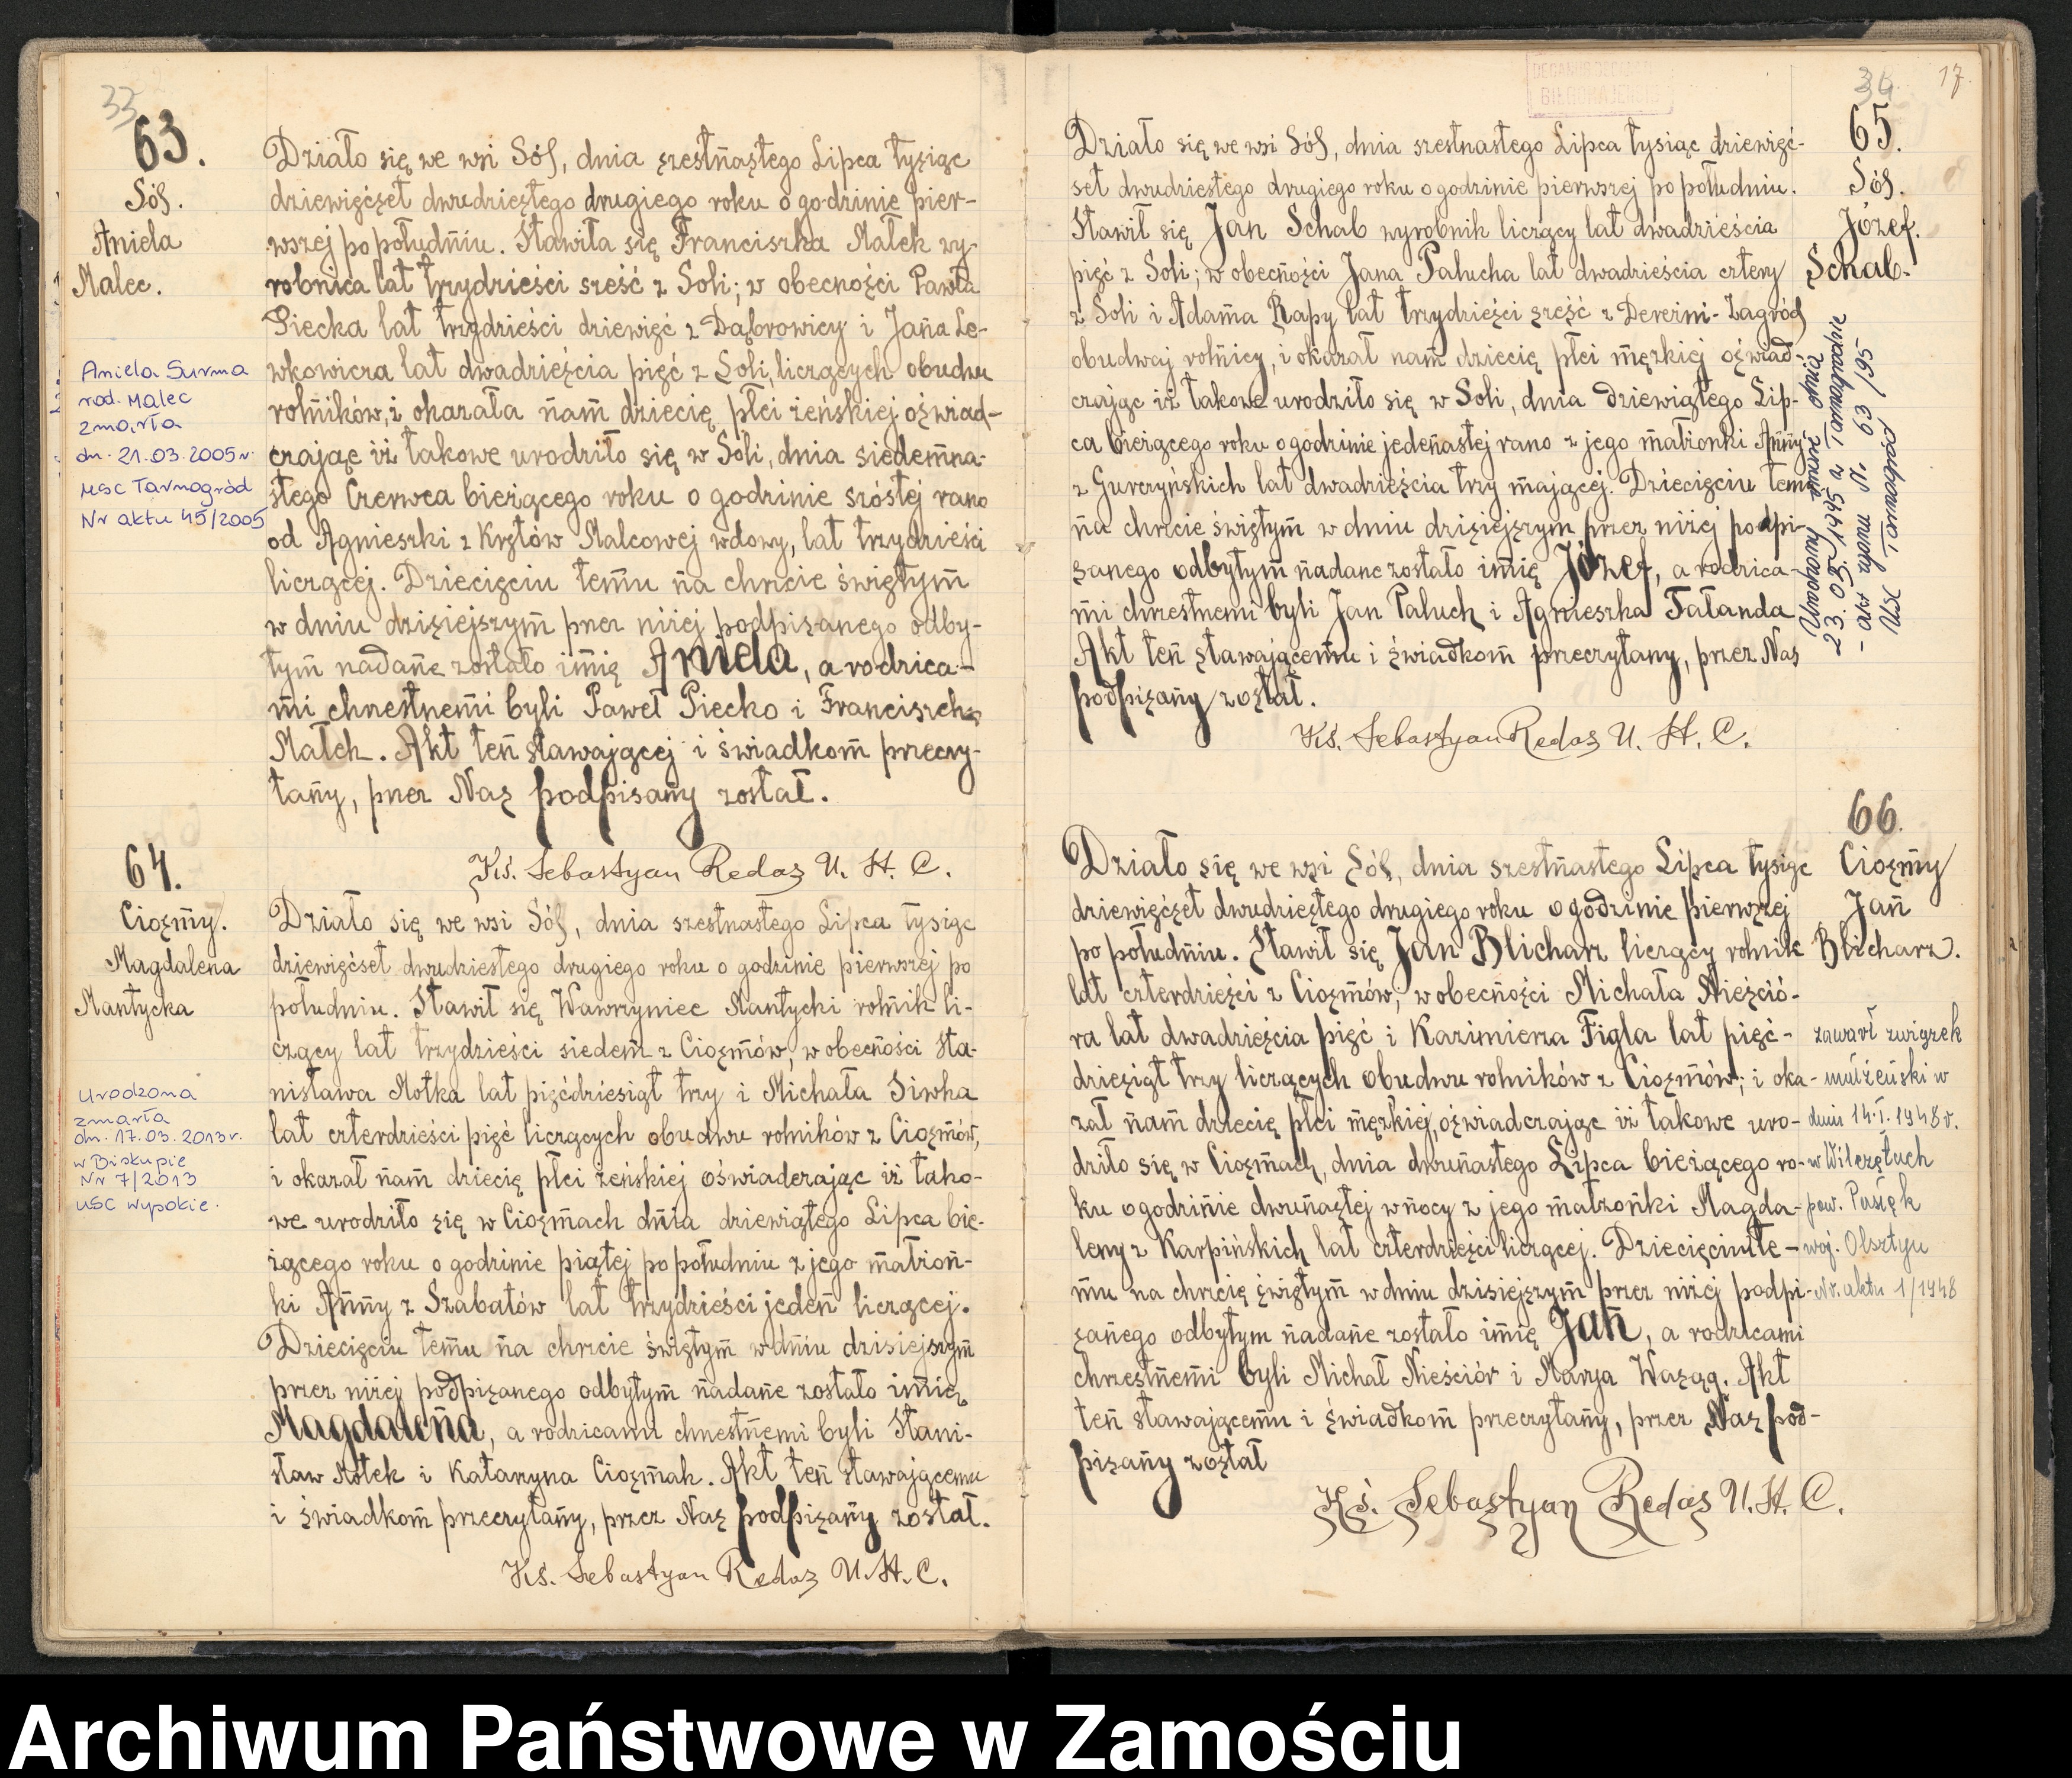 33
63.
Sól.
Aniela
Malec.
Aniela Surma
rod. Malec
zmarła
dn. 21.03.2005 r.
USC Tarnogród
Nr aktu 45/2005
Działo się we wsi Sól, dnia szestnastego Lipca tysiąc
dziewięćset dwudziestego drugiego roku o godzinie pier-
wszej po południu. Stawiła się Franciszka Małek wy-
robnica lat trzydzieści sześć z Soli; w obecności Pawła
Piecka lat trzydzieści dziewięć z Dąbrowicy i Jana Le-
wkowicza lat dwadzieścia pięć z Soli, liczących obudwu
rolników, i okazała nam dziecię płci żeńskiej oświad-
czając iż takowe urodziło się w Soli, dnia siedemna-
stego Czerwca bieżącego roku o godzinie szóstej rano
od Agnieszki z Kręłów Malcowej wdowy, lat trzydzieści
liczącej. Dziecięciu temu na chrzcie świętym
w dniu dzisiejszym przez niżej podpisanego odby-
tym nadane zostało imię Aniela, a rodzica-
mi chrzestnemi byli Paweł Piecko i Franciszka
Małek. Akt ten stawającej i świadkom przeczy-
tany, przez Nas podpisany został.
Ks. Sebastyan Redas U. S. C.
64.
Ciosmy.
Magdalena
Mantycka
urodzona
zmarła
dn. 17.03.2013 r.
w Biskupie
Nr 7/2013
USC Wysokie.
Działo się we wsi Sól, dnia szestnastego Lipca tysiąc
dziewięćset dwudziestego drugiego roku o godzinie pierwszej po
południu. Stawił się Wawrzyniec Mantycki rolnik li-
czący lat trzydzieści siedem z Ciosmów, w obecności Sta-
nisława Motka lat pięćdziesiąt trzy i Michała Siwka
lat czterdzieści pięć liczących obudwu rolników z Ciosmów,
i okazał nam dziecię płci żeńskiej oświadczając iż tako-
we urodziło się w Ciosmach dnia dziewiątego Lipca bie-
żącego roku o godzinie piątej po południu z jego małżon-
ki Anny z Szabatów lat trzydzieści jeden liczącej.
Dziecięciu temu na chrzcie świętym w dniu dzisiejszym
przez niżej podpisanego odbytym nadane zostało imię
Magdalena, a rodzicami chrzestnemi byli Stani-
sław Motek i Katarzyna Ciosmak. Akt ten stawającemu
i świadkom przeczytany, przez Nas podpisany został.
Ks. Sebastyan Redas U. S. C.
34
17.
65.
Sól.
Józef.
Schab.
Działo się we wsi Sól, dnia szestnastego Lipca tysiąc dziewięć-
set dwudziestego drugiego roku o godzinie pierwszej po południu.
Stawił się Jan Schab wyrobnik liczący lat dwadzieścia
pięć z Soli; w obecności Jana Palucha lat dwadzieścia cztery
z Soli i Adama Rapy lat trzydzieści sześć z Dereźni-Zagród
obudwaj rolnicy, i okazał nam dziecię płci męzkiej oświad-
czając iż takowe urodziło się w Soli, dnia dziewiątego Lip-
ca bieżącego roku o godzinie jedenastej rano z jego małżonki Anny
z Gurczyńskich lat dwadzieścia trzy mającej. Dziecięciu temu
na chrzcie świętym w dniu dzisiejszym przez niżej podpi-
sanego odbytym nadane zostało imię Józef, a rodzica-
mi chrzestnemi byli Jan Paluch i Agnieszka Fałanda
Akt ten stawającemu i świadkom przeczytany, przez Nas
podpisany został.
Ks. Sebastyan Redas U. S. C.
Urodzony zmarł dnia
23.03.1995 w Tarnogrodzie
- akt zgonu nr 63/95
USC Tarnogród
66.
Ciosmy
Jan
Blicharz.
zawarł związek
małżeński w
dniu 14.I.1948 r.
w Wilczętach
pow. Pasłęk
woj. Olsztyn
Nr. aktu 1/1948
Działo się we wsi Sól, dnia szestnastego Lipca tysiąc
dziewięćset dwudziestego drugiego roku o godzinie pierwszej
po południu. Stawił się Jan Blicharz liczący rolnik
lat czterdzieści z Ciosmów; w obecności Michała Nieśció-
ra lat dwadzieścia pięć i Kazimierza Figla lat pięć-
dziesiąt trzy liczących obudwu rolników z Ciosmów; i oka-
zał nam dziecię płci męzkiej, oświadczając iż takowe uro-
dziło się w Ciosmach, dnia dwunastego Lipca bieżącego ro-
ku o godzinie dwunastej w nocy z jego małżonki Magda-
leny z Karpińskich lat czterdzieści liczącej. Dziecięciu te-
mu na chrzcię świętym w dniu dzisiejszym przez niżej podpi-
sanego odbytym nadane zostało imię Jan, a rodzicami
chrzestnemi byli Michał Nieściór i Marya Wasąg. Akt
ten stawającemu i świadkom przeczytany, przez Nas pod-
pisany został
Ks. Sebastyan Redas U. S. C.
Archiwum Państwowe w Zamościu